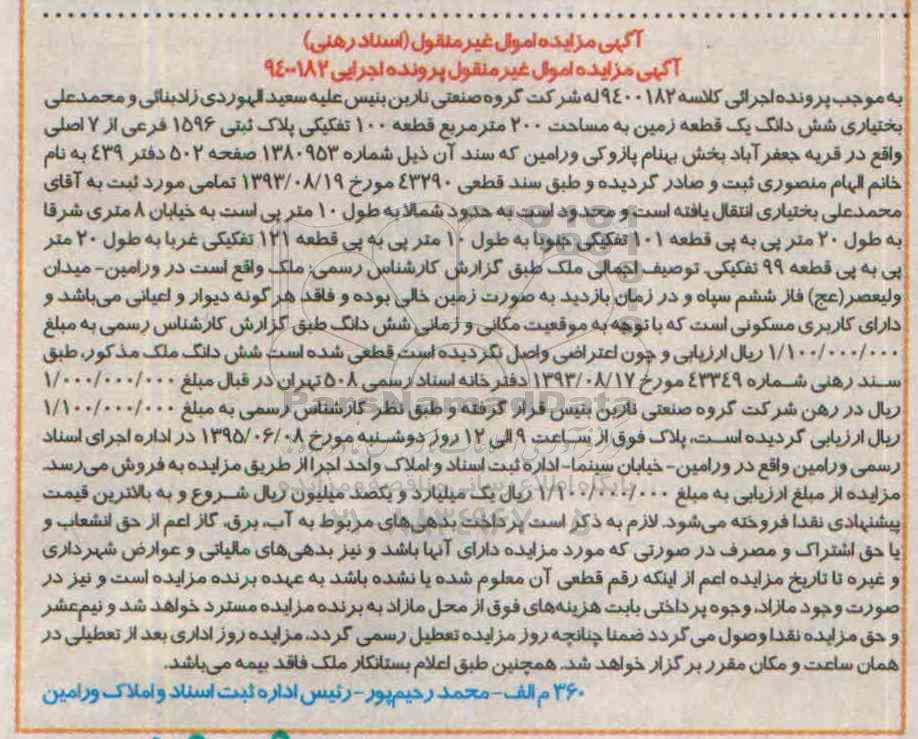 آگهی مزایده اموال غیر منقول (اسناد رهنی)
آگهی مزایده اموال غیر منقول پرونده اجرایی ۹۴۰۰۱۸۲
به موجب پرونده اجرائی کلاسه ۹۴۰۰۱۸۲ له شرکت گروه صنعتی نارین بنیس علیه سعید الهوردی زادبنائی و محمدعلی
بختیاری شش دانگ یک قطعه زمین به مساحت ۲۰۰ مترمربع قطعه ۱۰۰ تفکیکی پلاک ثبتی ۱۵۹۶ فرعی از ۷ اصلی
واقع در قریه جعفر آباد بخش بهنام پازوکی ورامین که سند آن ذیل شماره ۱۳۸۰۹۵۳ صفحه ۵۰۲ دفتر ۴۳۹ به نام
خانم الهام منصوری ثبت و صادر گردیده و طبق سند قطعی ۴۳۲۹۰ مورخ ۱۳۹۳/۰۸/۱۹ تمامی مورد ثبت به آقای
محمدعلی بختیاری انتقال یافته است و محدود است به حدود شمالا به طول ۱۰ متر پی است به خیابان ۸ متری شرقا
به طول ۲۰ متر پی به پی قطعه ۱۰۱ تفکیکی جنوبا به طول ۱۰ متر پی به پی قطعه ۱۲۱ تفکیکی غربا به طول ۲۰ متر
پی به پی قطعه ۹۹ تفکیکی. توصیف اجمالی ملک طبق گزارش کارشناس رسمی: ملک واقع است در ورامین- میدان
ولیعصر(عج) فاز ششم سپاه و در زمان بازدید به صورت زمین خالی بوده و فاقد هر گونه دیوار و اعیانی می‌باشد و
دارای کاربری مسکونی است که با توجه به موقعیت مکانی و زمانی شش دانگ طبق گزارش کارشناس رسمی به مبلغ
۱/۱۰۰/۰۰۰/۰۰۰ ریال ارزیابی و چون اعتراضی واصل نگردیده است قطعی شده است شش دانگ ملک مذکور، طبق
سند رهنی شماره ۴۳۳۴۹ مورخ ۱۳۹۳/۰۸/۱۷ دفترخانه اسناد رسمی ۵۰۸ تهران در قبال مبلغ ۱/۰۰۰/۰۰۰/۰۰۰
ریال در رهن شرکت گروه صنعتی نارین بنیس قرار گرفته و طبق نظر کارشناس رسمی به مبلغ ۱/۱۰۰/۰۰۰/۰۰۰
ریال ارزیابی گردیده است، پلاک فوق از ساعت ۹ الی ۱۲ روز دوشنبه مورخ ۱۳۹۵/۰۶/۰۸ در اداره اجرای اسناد
رسمی ورامین واقع در ورامین- خیابان سینما- اداره ثبت اسناد و املاک واحد اجرا از طریق مزایده به فروش می‌رسد.
مزایده از مبلغ ارزیابی به مبلغ ۱/۱۰۰/۰۰۰/۰۰۰ ریال یک میلیارد و یکصد میلیون ریال شروع و به بالاترین قیمت
پیشنهادی نقدا فروخته می‌شود. لازم به ذکر است پرداخت بدهی‌های مربوط به آب، برق، گاز اعم از حق انشعاب و
یا حق اشتراک و مصرف در صورتی که مورد مزایده دارای آنها باشد و نیز بدهی‌های مالیاتی و عوارض شهرداری
و غیره تا تاریخ مزایده اعم از اینکه رقم قطعی آن معلوم شده یا نشده باشد به عهده برنده مزایده است و نیز در
صورت وجود مازاد، وجوه پرداختی بابت هزینه‌های فوق از محل مازاد به برنده مزایده مسترد خواهد شد و نیم‌عشر
و حق مزایده نقدا وصول می‌گردد ضمنا چنانچه روز مزایده تعطیل رسمی گردد، مزایده روز اداری بعد از تعطیلی در
همان ساعت و مکان مقرر برگزار خواهد شد. همچنین طبق اعلام بستانکار ملک فاقد بیمه می‌باشد.
۳۶۰ م الف- محمد رحیم‌پور - رئیس اداره ثبت اسناد و املاک ورامین
ParsNamadData